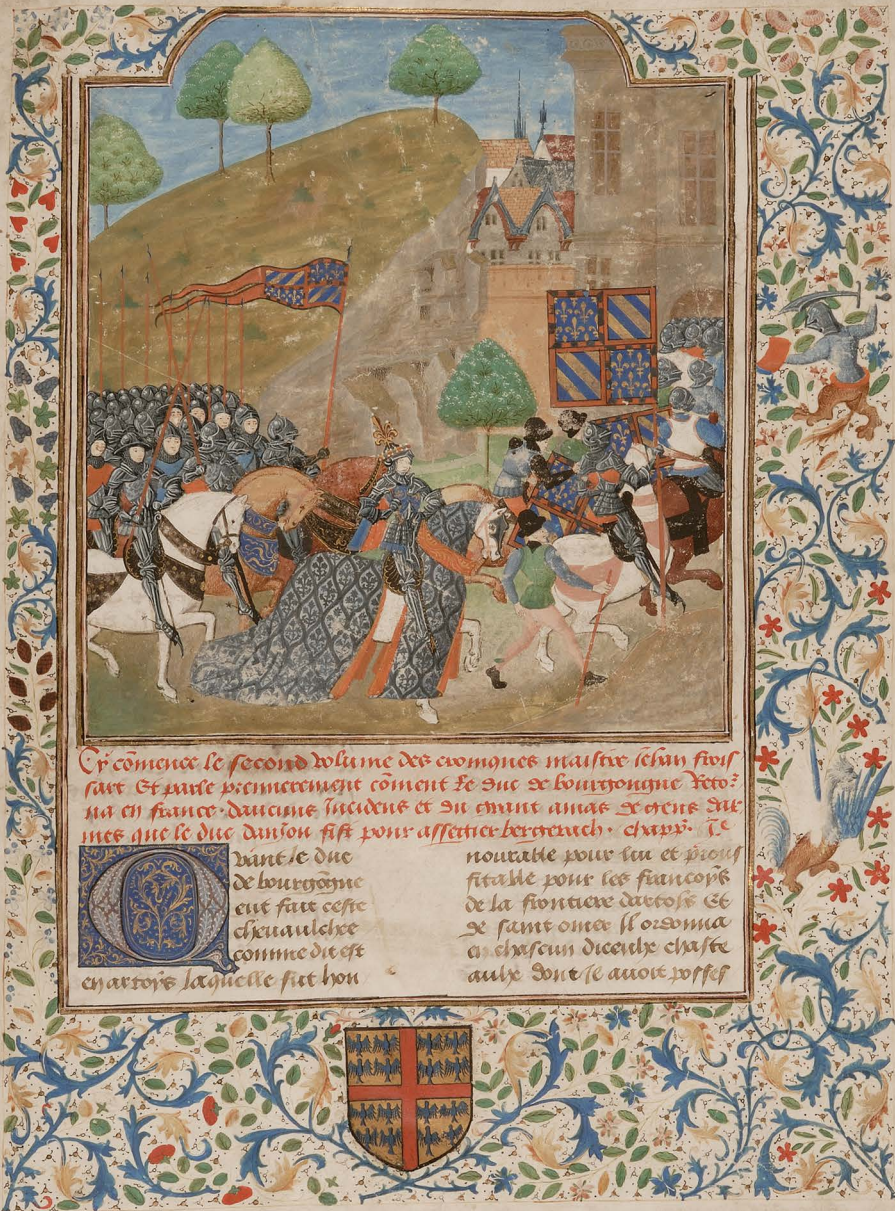 Cy cōmence le second volume des croniques maistre iehan frois
sart Et parle premierement cōment Le duc de bourgongne Reto᷑
na en france. daucuns Incidens et du grant amas de gens dar
mes que le duc daniou fist pour assegier bergerach. chapp̄. Ie
Quant le duc
de bourgōgne
eut faicte ceste
cheuaulchee
comme dit est
en artoys laquelle fut hon
nourable pour lui et prous
fitable pour les francoys
de la frontiere dartois Et
de saint omer Il ordonna
en chascun diceulx chaste
aulx dont il auoit posses